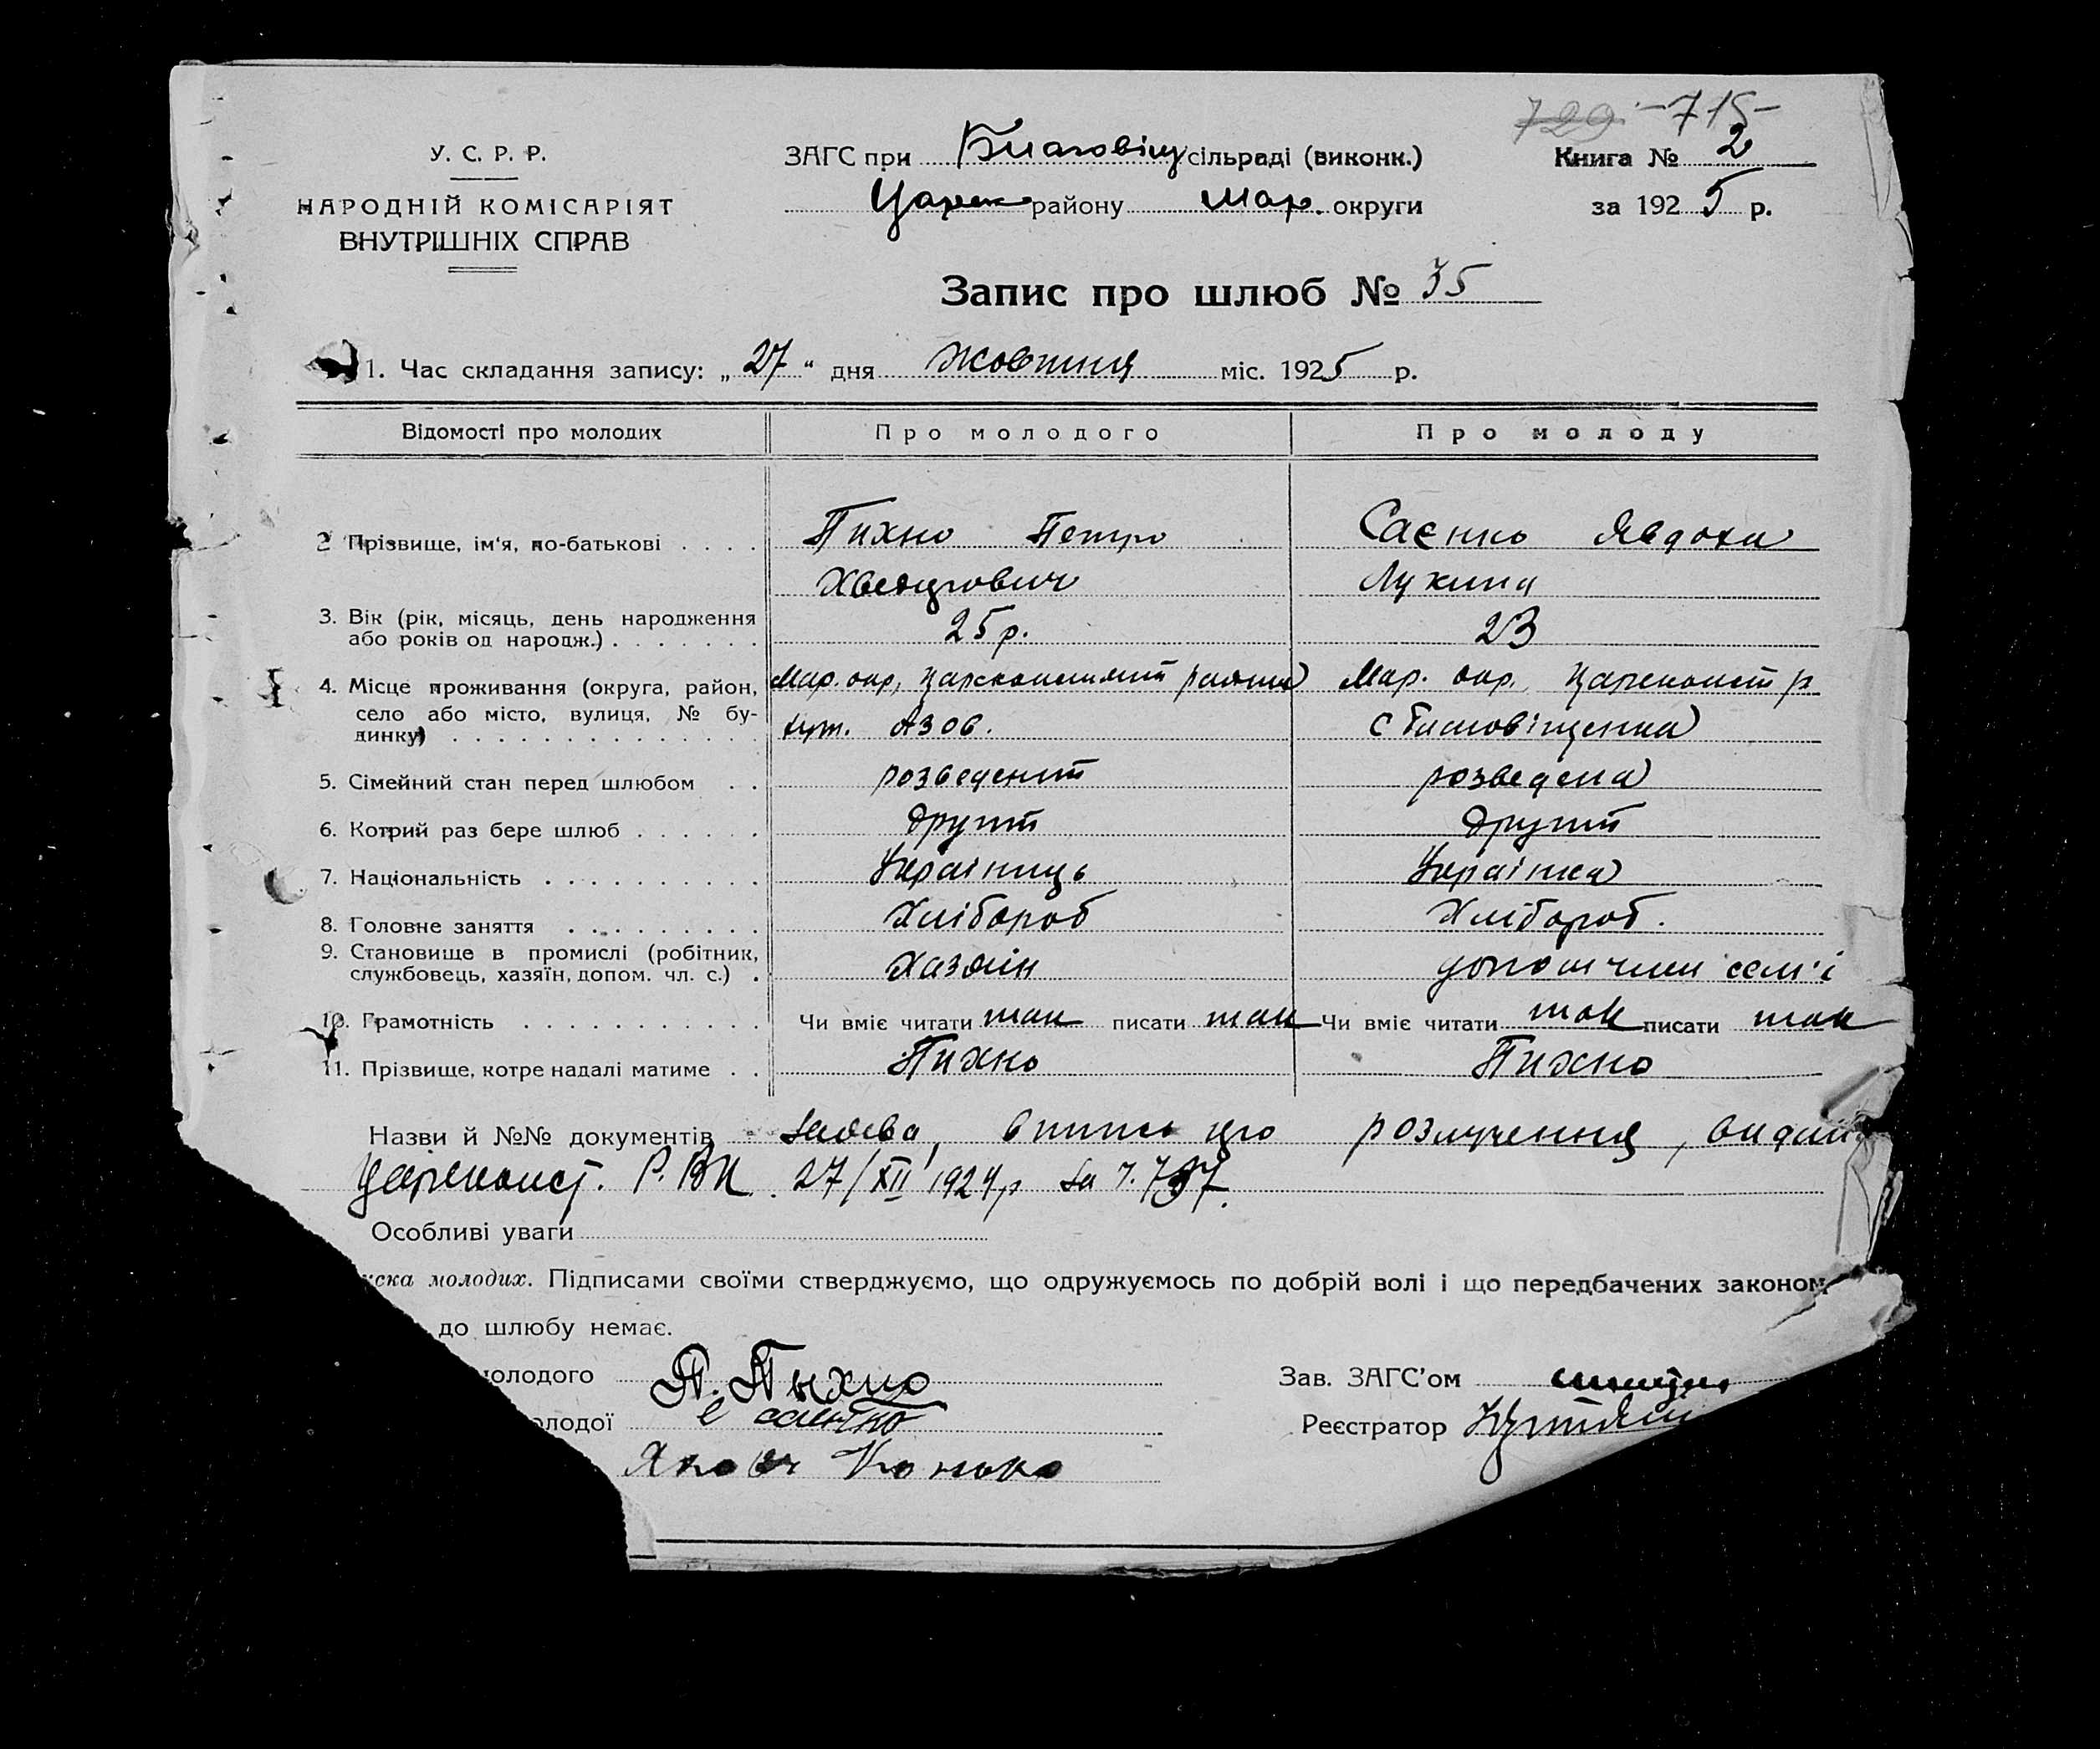 729 - 715 -
У. С. Р. Р.
НАРОДНІЙ КОМІСАРІЯТ
ВНУТРІШНІХ СПРАВ
ЗАГС при Благовіщ сільраді (виконк.)
Царек району Мар. округи
Книга № 2
за 1925 р.
Запис про шлюб № 35
1. Час складання запису: „27" дня жовтня міс. 1925 р.
Відомості про молодих Про молодого Про молоду
2 Прізвище, ім'я, по-батькові . . . . Пихно Петро Саєнко Явдоха
Хведорович Лукина
3. Вік (рік, місяць, день народження
або років од народж.) . . . . . . . 25 р. 23
4. Місце проживання (округа, район, Мар. окр, Царекон­ст р
село або місто, вулиця, № бу-
динку) . . . . . . . . . . . . . . хут. Азов. с Благовіщенка
5. Сімейний стан перед шлюбом . . розведений розведена
6. Котрий раз бере шлюб . . . . . . другий другий
7. Національність . . . . . . . . . . Українць Українка
8. Головне заняття . . . . . . . . . Хлібороб Хлібороб.
9. Становище в промислі (робітник,
службовець, хазяїн, допом. чл. с.) . Хазяїн допом член сем'ї
10. Грамотність . . . . . . . . . . . Чи вміє читати так писати так Чи вміє читати так писати так
11. Прізвище, котре надалі матиме . . Пихно Пихно
Назви й №№ документів заява, випис про розлучення, видан
Цареконст. Р.ВК. 27/XII 1924р за ч. 737.
Особливі уваги
иска молодих. Підписами своїми стверджуємо, що одружуємось по добрій волі і що передбачених законом
до шлюбу немає.
молодого П. Пыхно
олодої е саенко
Яков Конько
Зав. ЗАГС'ом
Реєстратор